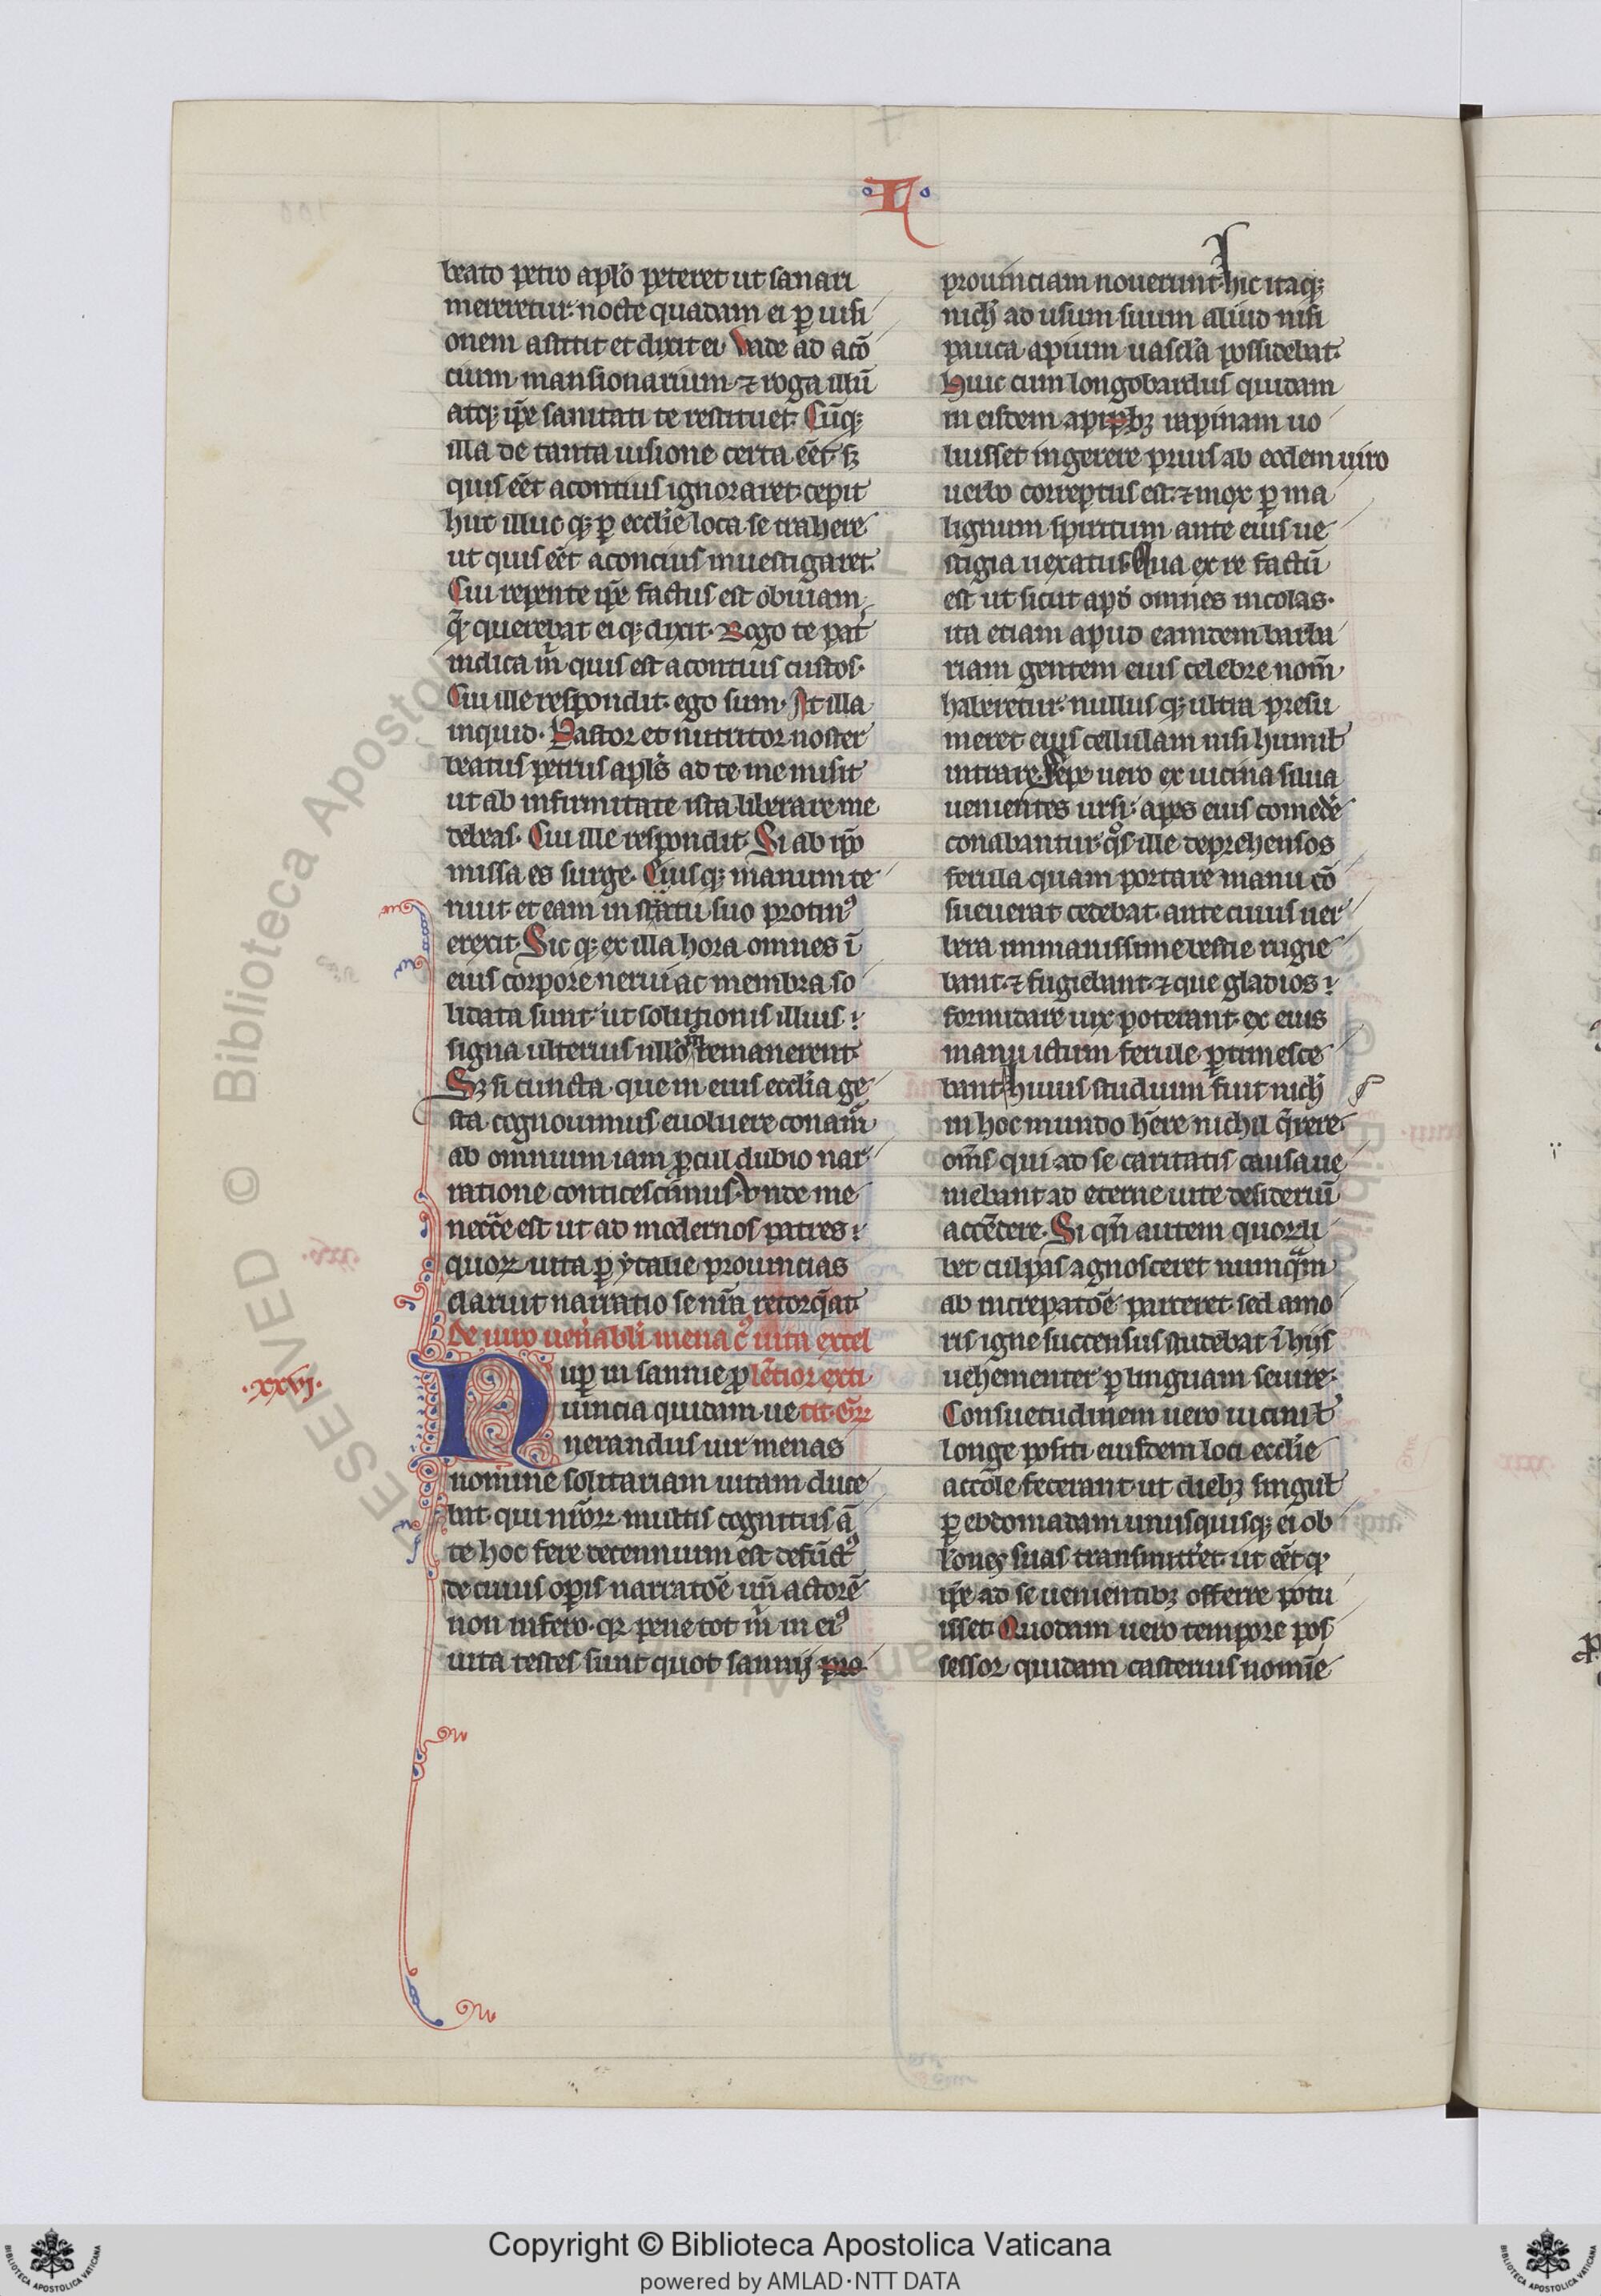 L
beato petro apło peteret ut sanari
mereretur. nocte quadam ei ꝑ uisi
onem astitit et dixit ei Vade ad acō
cium mansionarium ⁊ roga illū
atqꝫ ip̄e sanitati te restituet. Cūqꝫ
illa de tanta uisione certa eēt sꝫ
quis eēt acontius ignoraret. cepit
huc illuc qꝫ ꝑ ecclīe loca se trahere
ut quis eēt aconcius inuestigaret.
Cui repente ip̄e factus est obuiam
q̄ querebat eiqꝫ dixit. Rogo te pat̄
indica m̄ quis est acontius custos.
Cui ille respondit. ego sum. At illa
inquid. Pastor et nutritor noster
beatus petrus apl̄s ad te me misit
ut ab infirmitate ista liberare me
debeas. Cui ille respondit. Si ab ip̄o
missa es surge. Eiusqꝫ manum te
nuit et eam in statu suo protinꝰ
erexit. Sic qꝫ ex illa hora omnes ī
eius corpore nerui ac membra so
lidata sunt ut solutionis illius
signa ulterius ullo m̊ remanerent.
Sꝫ si cuncta que in eius ecclīa ge
sta cognouimus euoluere conam̄
ab omnium iam ꝓcul dubio nar
ratione conticescimus. Vnde me
neccē est ut ad modernos patres
quoꝝ uita ꝑ ytalie prouincias
claruit narratio se nr̄a retorq̄at.
de uiro uen̄abli mena cͥ uita excel
lētior exti
tit. Gr̄
.xxvi.
Nuꝑ in sannie ꝓ
uincia quidam ue
nerandus uir menas
nomine solitariam uitam duce
bat. qui nr̄oꝝ multis cognitus ā
te hoc fere decennium est defūctꝰ
de cuius oꝑis narratōe un̄ actorē
non infero. qꝛ pene tot m̄ in eiꝰ
uita testes sunt quot sannij pro
prouinciam nouerunt. hic itaqꝫ
nich̄ ad usum suum aliud nisi
pauca apium uascl̄a possidebat.
Huic cum longobardus quidam
in eisdem apibꝫ rapinam uo
luisset ingerere prius ab eodem uiro
uerbo correptus est. ⁊ mox ꝑ ma
lignum spiritum ante eius ue
stigia uexatus. Qua ex re factū
est ut sicut apđ omnes incolas.
ita etiam apud eamdem barba
riam gentem eius celebre nom̄
haberetur. nullusqꝫ ultra presu
meret eius cellulam nisi humil̄
intrare. Sepe uero ex uicina silua
uenientes ursi. apes eius comedē
conabantur. qͦs ille deprehensos
ferula quam portare manu cō
sueuerat cedebat. ante cuius uer
bera immanissime bestie rugie
bant. ⁊ fugiebant. ⁊ que gladios
formidare uix poterant. ex eius
manu ictum ferule ꝑtimesce
bant. huius studium fuit nich̄
in hoc mundo hēre nichil q̄rere.
om̄s qui ad se caritatis causa ue
niebant ad eterne uite desideriū
accēdere. Si qn̄ autem quorūli
bet culpas agnosceret numqᷓm
ab increpatōe parceret. sed amo
ris igne succensus studebat ī hijs
uehementer ꝑ linguam seuire.
Consuetudinem uero uicini ł
longe positi eiusdem loci ecclīe
accōle fecerant. ut diebꝫ singul̄
ꝑ ebdomadam unusquisqꝫ ei ob
lōnes suas transmitt̄et. ut eēt qͩ
ip̄e ad se uenientibꝫ offerre potu
isset. Quodam uero tempore pos
sessor quidam casterius nomīe
Copyright © Biblioteca Apostolica Vaticana
powered by AMLAD·NTT DATA